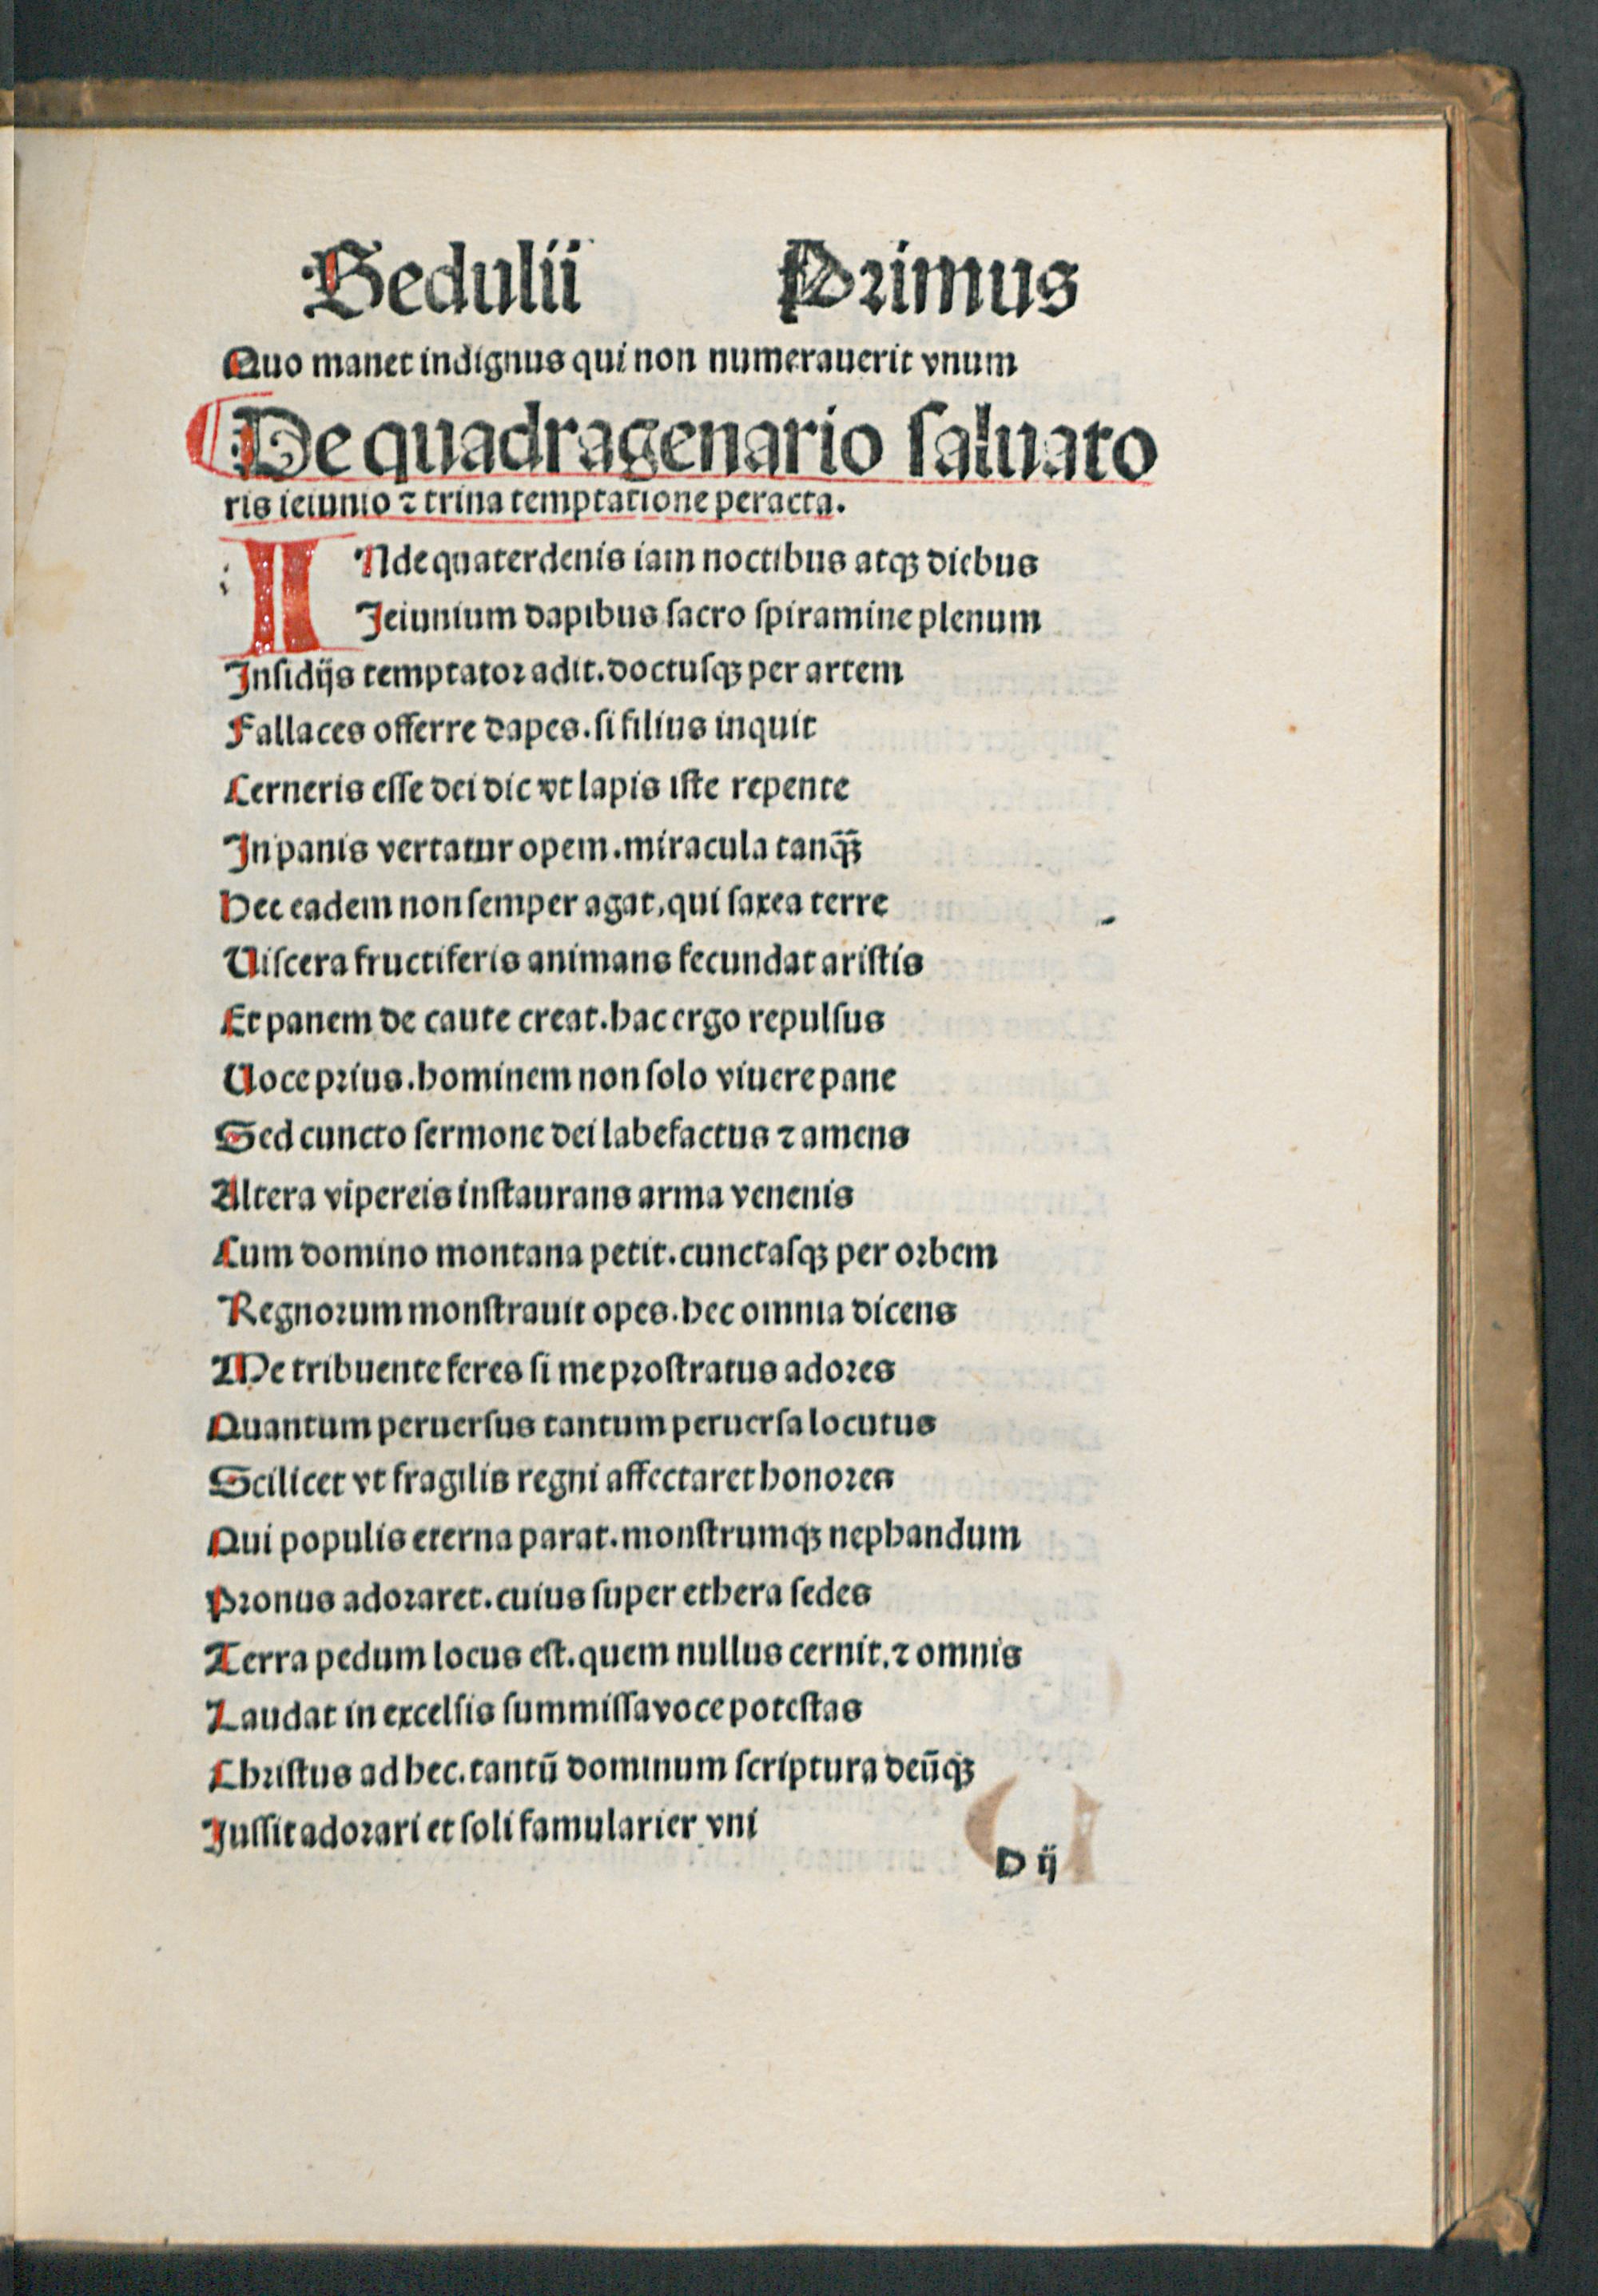 Sedulii Primus
Quo manet indignus qui non numerauerit vnum
De quadragenario ſaluato
ris ieiunio ⁊ trina temptatione peracta.
INde quater denis iam noctibus atqꝫ diebus
Jeiunium dapibus ſacro ſpiramine plenum
Jnſidijs temptator adit. doctuſqꝫ per artem
Fallaces offerre dapes. ſi filius inquit
Cerneris eſſe dei dic vt lapis iſte repente
Jn panis vertatur opem. miracula tanq̄ꝫ
Hec eadem non ſemper agat, qui ſaxea terre
Uiſcera fructiferis animans fecundat ariſtis
Et panem de caute creat. hac ergo repulſus
Uoce prius. hominem non ſolo viuere pane
Sed cuncto ſermone dei labefactus ⁊ amens
Altera vipereis inſtaurans arma venenis
Cum domino montana petit. cunctaſqꝫ per orbem
Regnorum monſtrauit opes. hec omnia dicens
Me tribuente feres ſi me proſtratus adores
Quantum peruerſus tantum peruerſa locutus
Scilicet vt fragilis regni affectaret honores
Qui populis eterna parat. monſtrumqꝫ nephandum
Pronus adoraret. cuius ſuper ethera ſedes
Terra pedum locus eſt. quem nullus cernit. ⁊ omnis
Laudat in excelſis ſummiſſa voce poteſtas
Chriſtus ad hec. tantū dominum ſcriptura deūqꝫ
Juſſit adorari et ſoli famularier vni
D ij